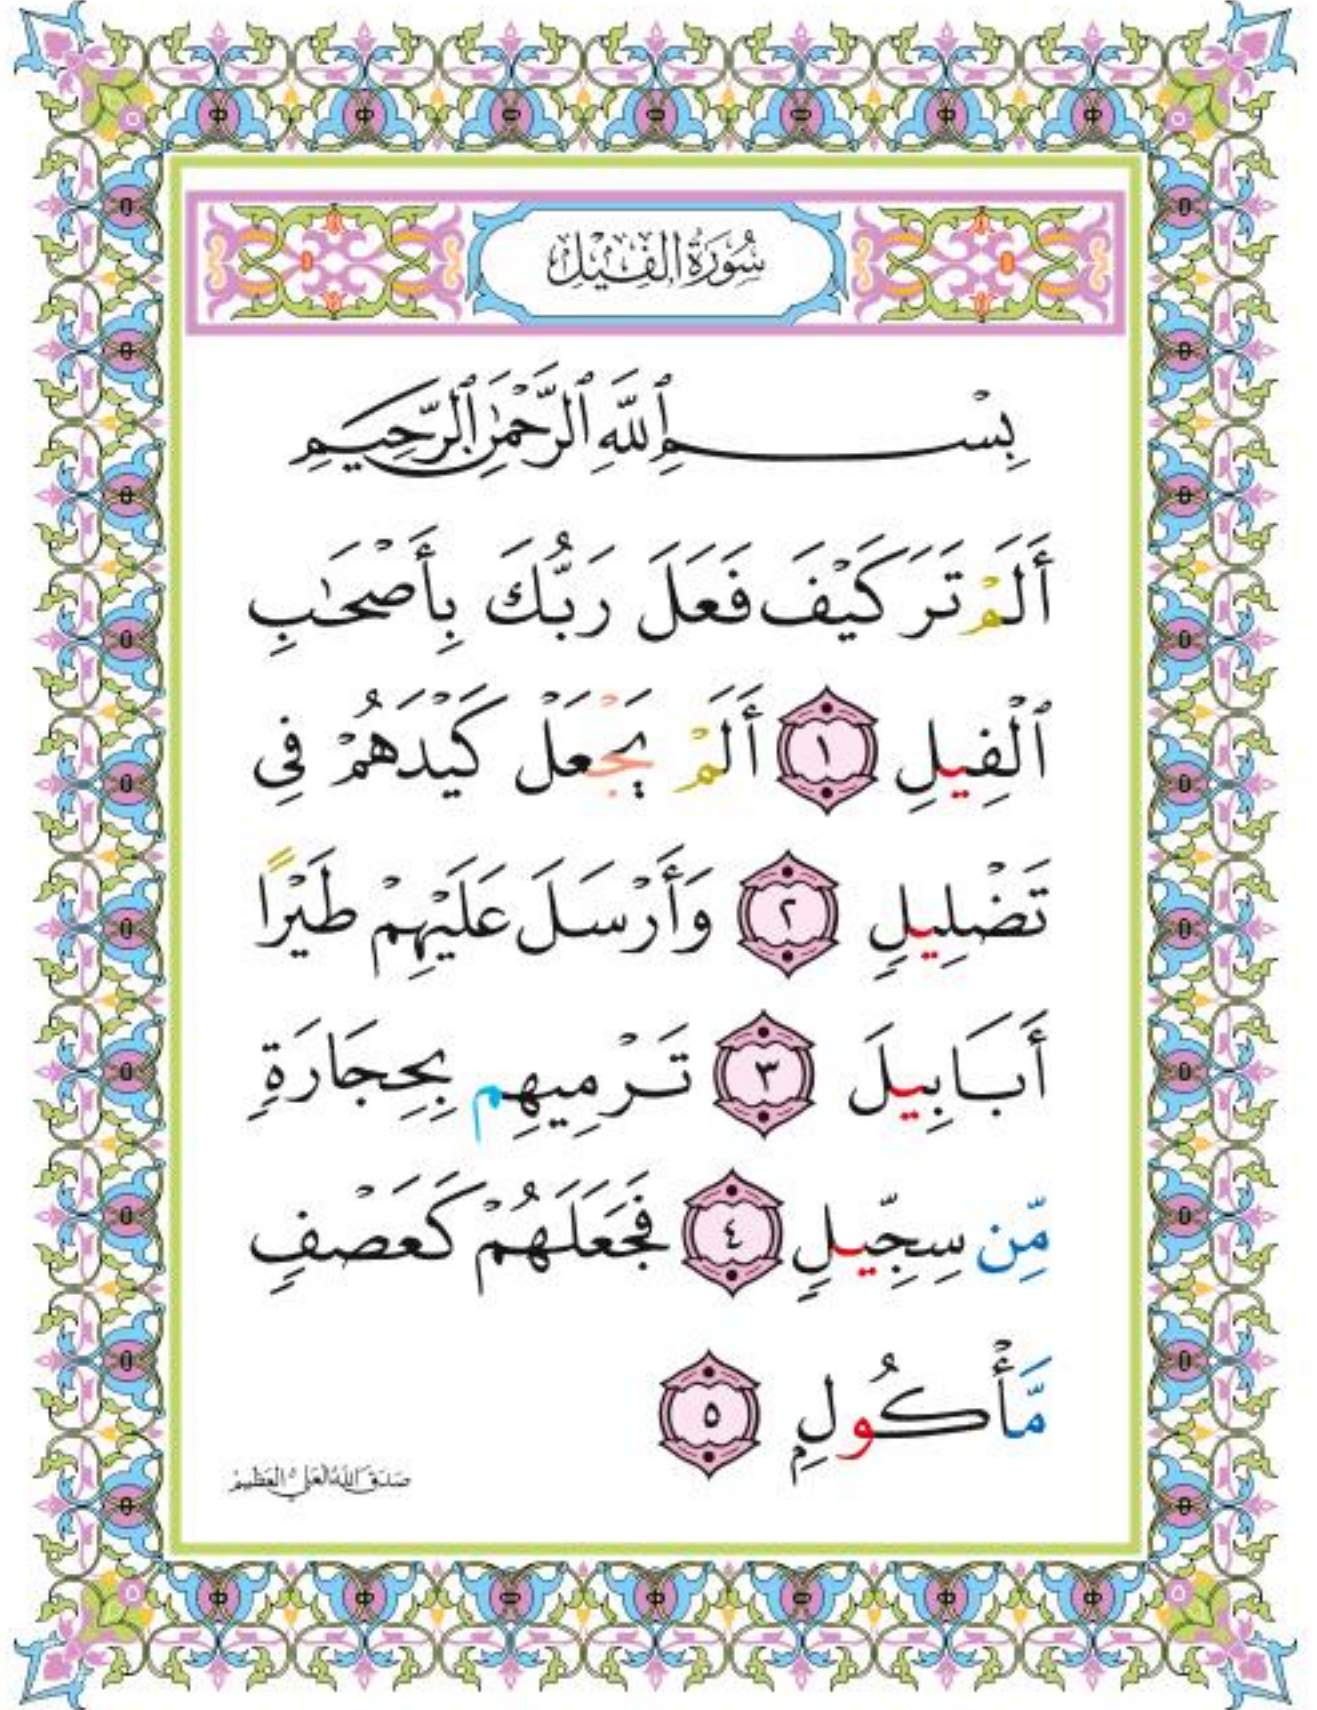 سُورَةُ الفِيْلِ
بِسْمِ ٱللَّهِ ٱلرَّحْمَٰنِ ٱلرَّحِيمِ
أَلَمْ تَرَ كَيْفَ فَعَلَ رَبُّكَ بِأَصْحَٰبِ
ٱلْفِيلِ ١ أَلَمْ يَجْعَلْ كَيْدَهُمْ فِى
تَضْلِيلٍ ٢ وَأَرْسَلَ عَلَيْهِمْ طَيْرًا
أَبَابِيلَ ٣ تَرْمِيهِم بِحِجَارَةٍ
مِّن سِجِّيلٍ ٤ فَجَعَلَهُمْ كَعَصْفٍ
مَّأْكُولٍ ٥
صَدَقَ اللهُ العَلِيُّ العَظِيمُ